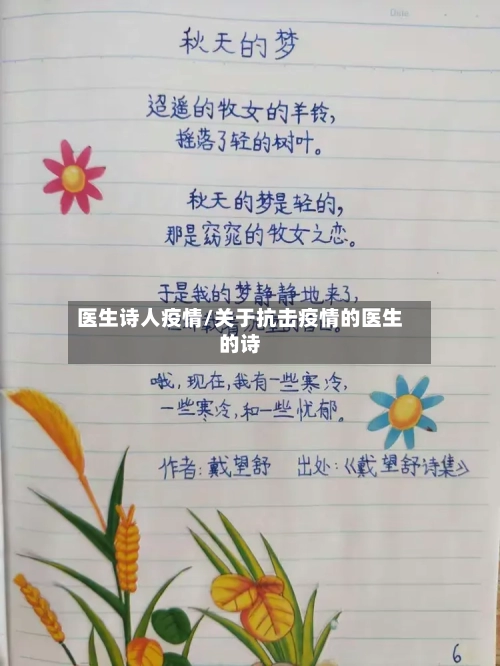 Date
秋天的梦
迢遥的牧女的羊铃,
摇落了轻的树叶。
秋天的梦是轻的,
那是窈窕的牧女之恋。
于是我的梦静静地来了,
医生诗人疫情/关于抗击疫情的医生
的诗
哦,现在,我有一些寒冷,
一些寒冷,和一些忧郁。
作者:戴望舒 出处:《戴望舒诗集》
6